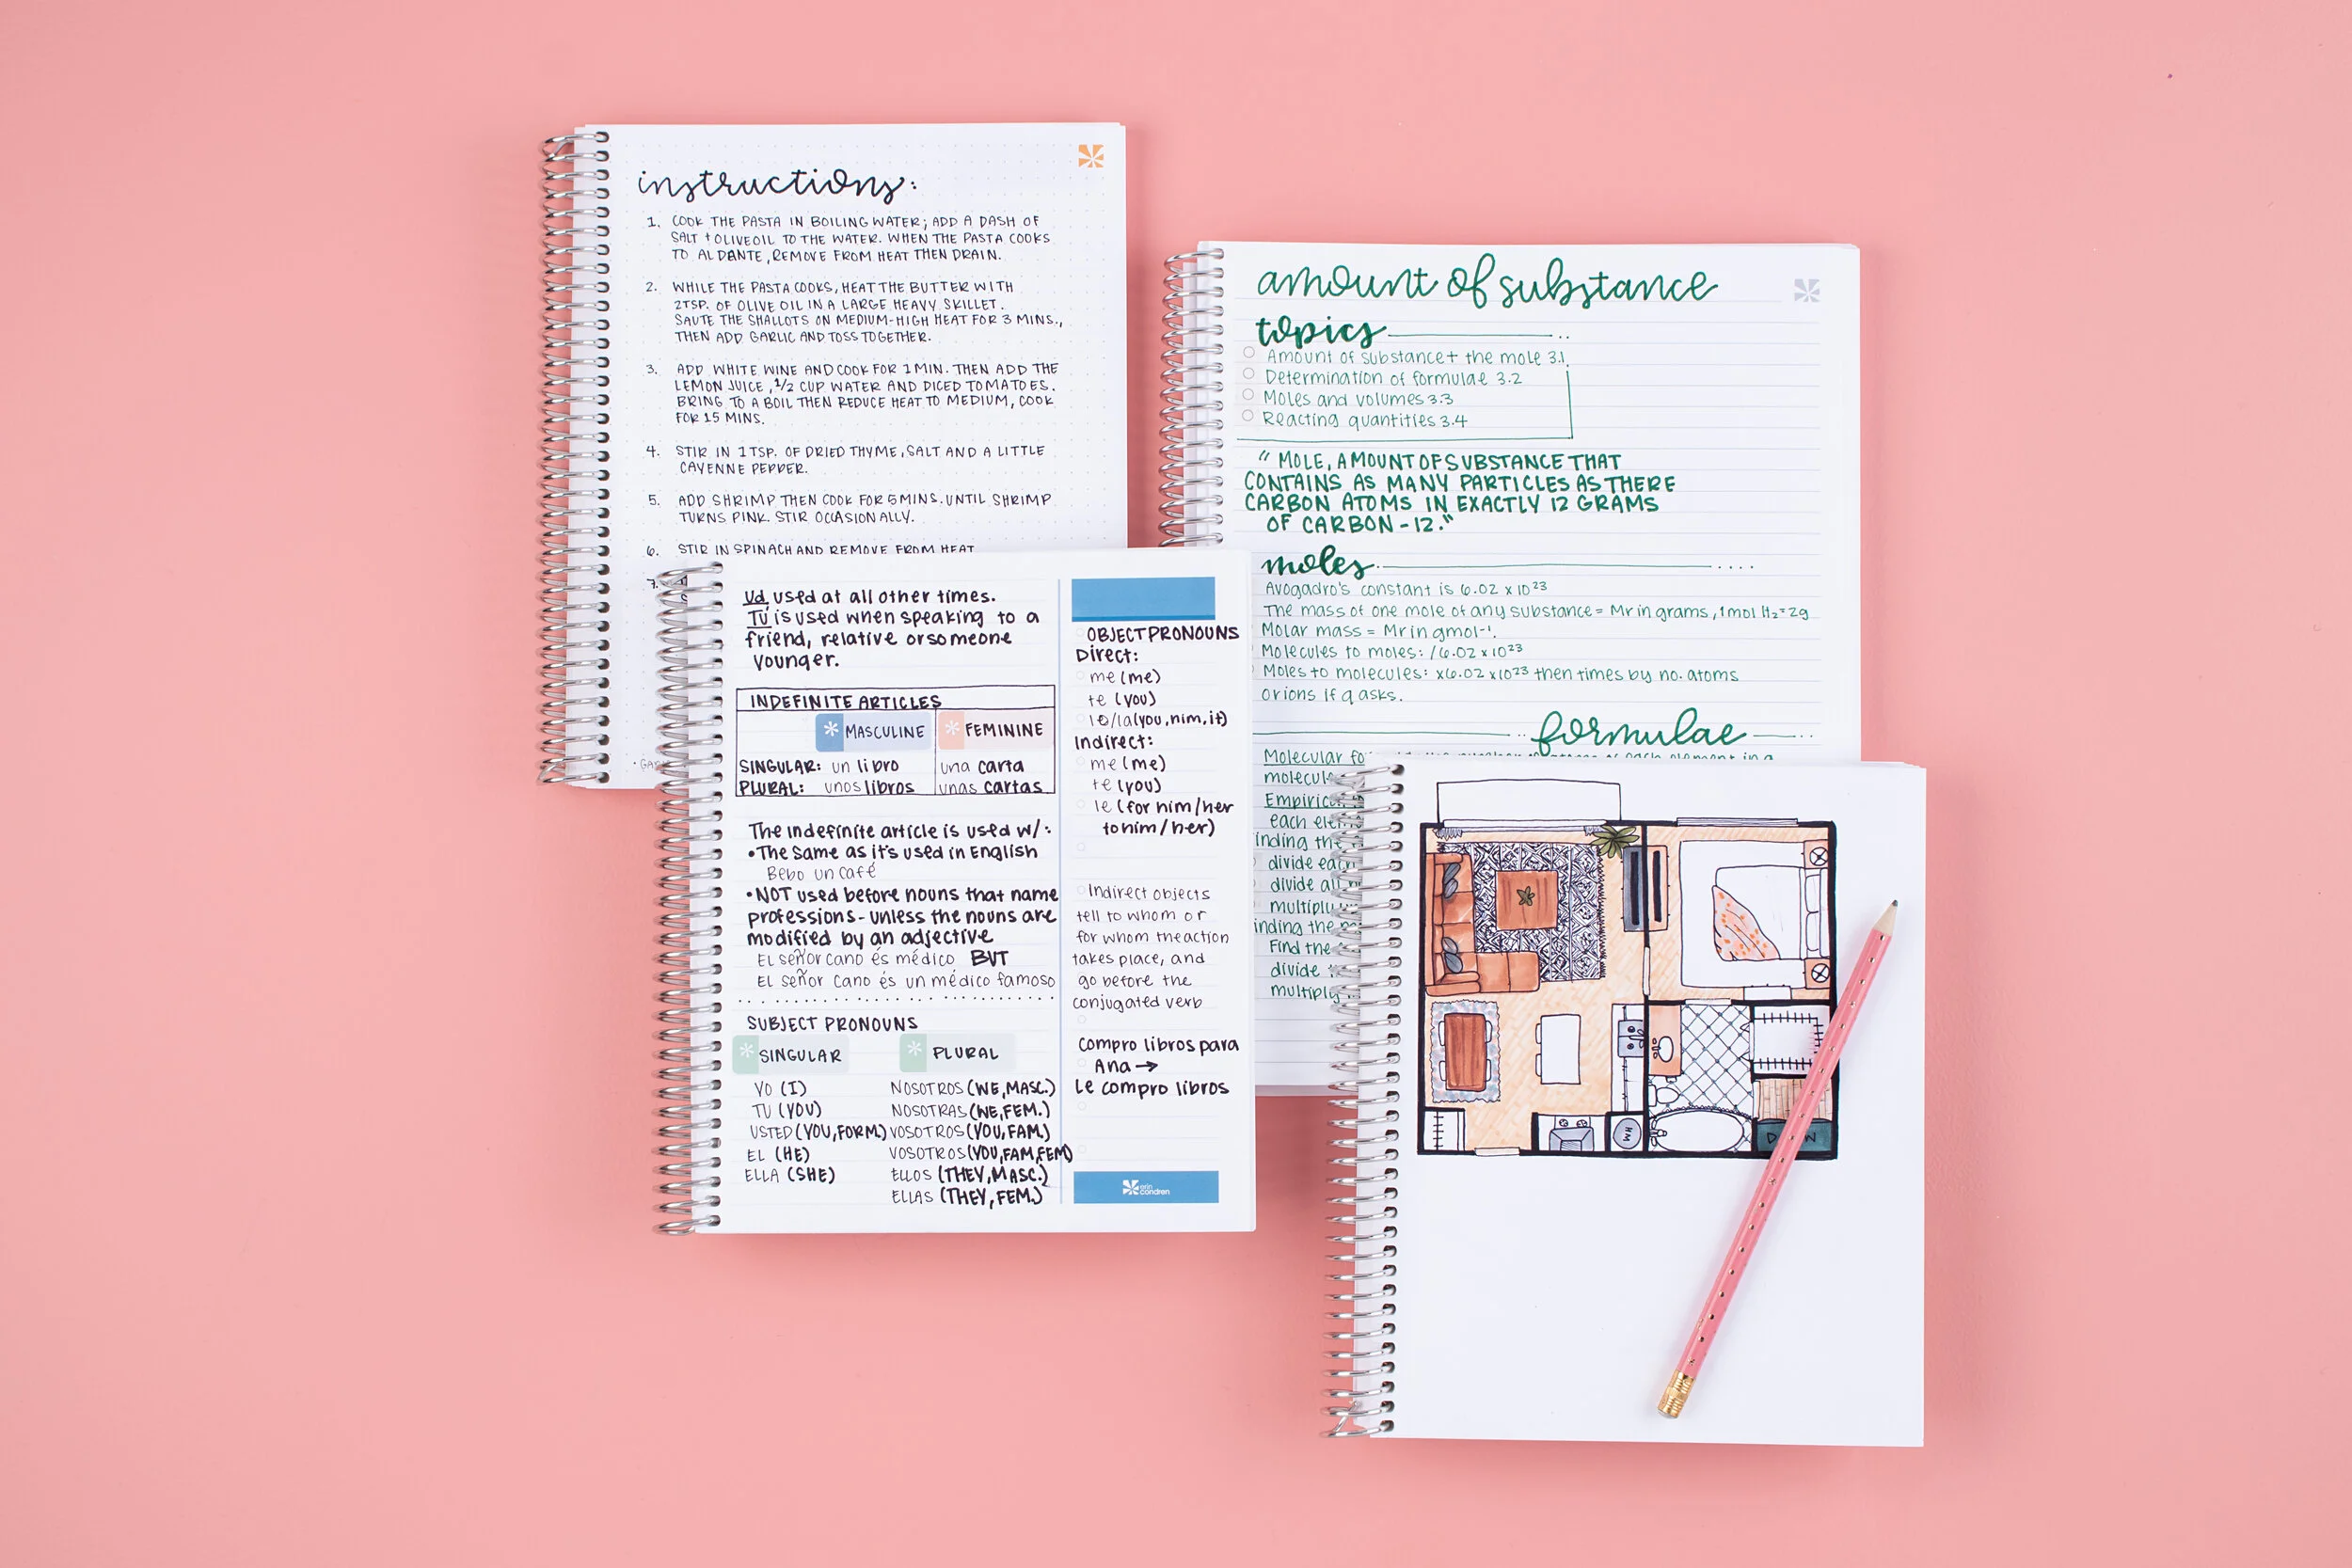 instructions:
1. COOK THE PASTA IN BOILING WATER; ADD A DASH OF
SALT + OLIVE OIL TO THE WATER. WHEN THE PASTA COOKS
TO AL DANTE, REMOVE FROM HEAT THEN DRAIN.
2. WHILE THE PASTA COOKS, HEAT THE BUTTER WITH
2TSP. OF OLIVE OIL IN A LARGE HEAVY SKILLET.
SAUTE THE SHALLOTS ON MEDIUM-HIGH HEAT FOR 3 MINS.,
THEN ADD GARLIC AND TOSS TOGETHER.
3. ADD WHITE WINE AND COOK FOR 1 MIN. THEN ADD THE
LEMON JUICE, 1/2 CUP WATER AND DICED TOMATOES.
BRING TO A BOIL THEN REDUCE HEAT TO MEDIUM, COOK
FOR 15 MINS.
4. STIR IN 1 TSP. OF DRIED THYME, SALT AND A LITTLE
CAYENNE PEPPER.
5. ADD SHRIMP THEN COOK FOR 5 MINS. UNTIL SHRIMP
TURNS PINK. STIR OCCASIONALLY.
6. STIR IN SPINACH AND REMOVE FROM HEAT
7.
amount of substance
topics
Amount of substance + the mole 3.1
Determination of formulae 3.2
Moles and volumes 3.3
Reacting quantities 3.4
" MOLE, AMOUNT OF SUBSTANCE THAT
CONTAINS AS MANY PARTICLES AS THERE
CARBON ATOMS IN EXACTLY 12 GRAMS
OF CARBON-12."
moles
Avogadro's constant is 6.02 x 10²³
The mass of one mole of any substance = Mr in grams, 1mol H₂=2g
Molar mass = Mr in gmol⁻¹.
Molecules to moles: /6.02 x 10²³
Moles to molecules: x6.02 x 10²³ then times by no. atoms
or ions if q asks.
formulae
Molecular
each element in a
each
divide
divide
multiply
Find the
divide
multiply
Ud used at all other times.
Tú is used when speaking to a
friend, relative or someone
younger.
INDEFINITE ARTICLES
MASCULINE FEMININE
SINGULAR: un libro una carta
PLURAL: unos libros unas cartas
The indefinite article is used w/:
•The same as it's used in English
Bebo un café
•NOT used before nouns that name
professions - unless the nouns are
modified by an adjective
El señor cano és médico BUT
El señor cano és un médico famoso
SUBJECT PRONOUNS
SINGULAR PLURAL
YO (I) NOSOTROS (WE, MASC.)
TU (YOU) NOSOTRAS (WE, FEM.)
USTED (YOU, FORM.) VOSOTROS (YOU, FAM.)
EL (HE) VOSOTROS (YOU, FAM, FEM)
ELLA (SHE) ELLOS (THEY, MASC.)
ELLAS (THEY, FEM.)
OBJECT PRONOUNS
Direct:
me (me)
te (you)
lo/la (you, him, it)
Indirect:
me (me)
te (you)
le (for him/her
to him/her)
Indirect objects
tell to whom or
for whom the action
takes place, and
go before the
conjugated verb
Compro libros para
Ana →
Le compro libros
erin
condren
HW
D W